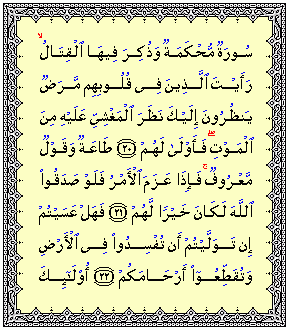 سُورَةٌ مُّحْكَمَةٌ وَذُكِرَ فِيهَا ٱلْقِتَالُ ۙ
رَأَيْتَ ٱلَّذِينَ فِى قُلُوبِهِم مَّرَضٌ
يَنظُرُونَ إِلَيْكَ نَظَرَ ٱلْمَغْشِىِّ عَلَيْهِ مِنَ
ٱلْمَوْتِ ۖ فَأَوْلَىٰ لَهُمْ ﴿٢٠﴾ طَاعَةٌ وَقَوْلٌ
مَّعْرُوفٌ ۚ فَإِذَا عَزَمَ ٱلْأَمْرُ فَلَوْ صَدَقُوا۟
ٱللَّهَ لَكَانَ خَيْرًا لَّهُمْ ﴿٢١﴾ فَهَلْ عَسَيْتُمْ
إِن تَوَلَّيْتُمْ أَن تُفْسِدُوا۟ فِى ٱلْأَرْضِ
وَتُقَطِّعُوٓا۟ أَرْحَامَكُمْ ﴿٢٢﴾ أُو۟لَٰٓئِكَ